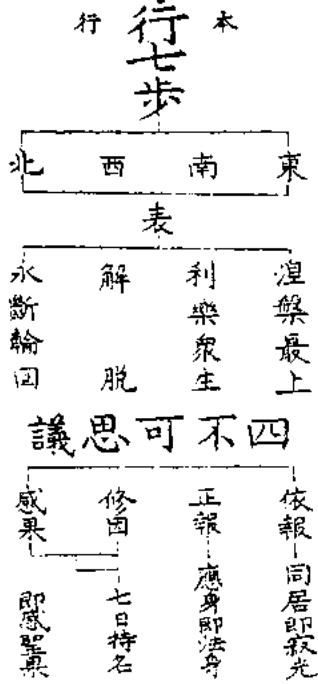 本行
行七步
東
南
西
北
表
涅槃最上
利樂眾生
解脫
永斷輪回
四不可思議
依報
同居即寂光
正報
應身即法身
修因
七日持名
感果
即感聖果